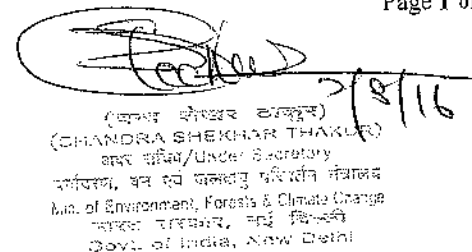 Page 1 of
2/8/16
(चन्द्र शेखर ठाकुर)
(CHANDRA SHEKHAR THAKUR)
अवर सचिव/Under Secretary
पर्यावरण, वन एवं जलवायु परिवर्तन मंत्रालय
Min. of Environment, Forests & Climate Change
भारत सरकार, नई दिल्ली
Govt. of India, New Delhi